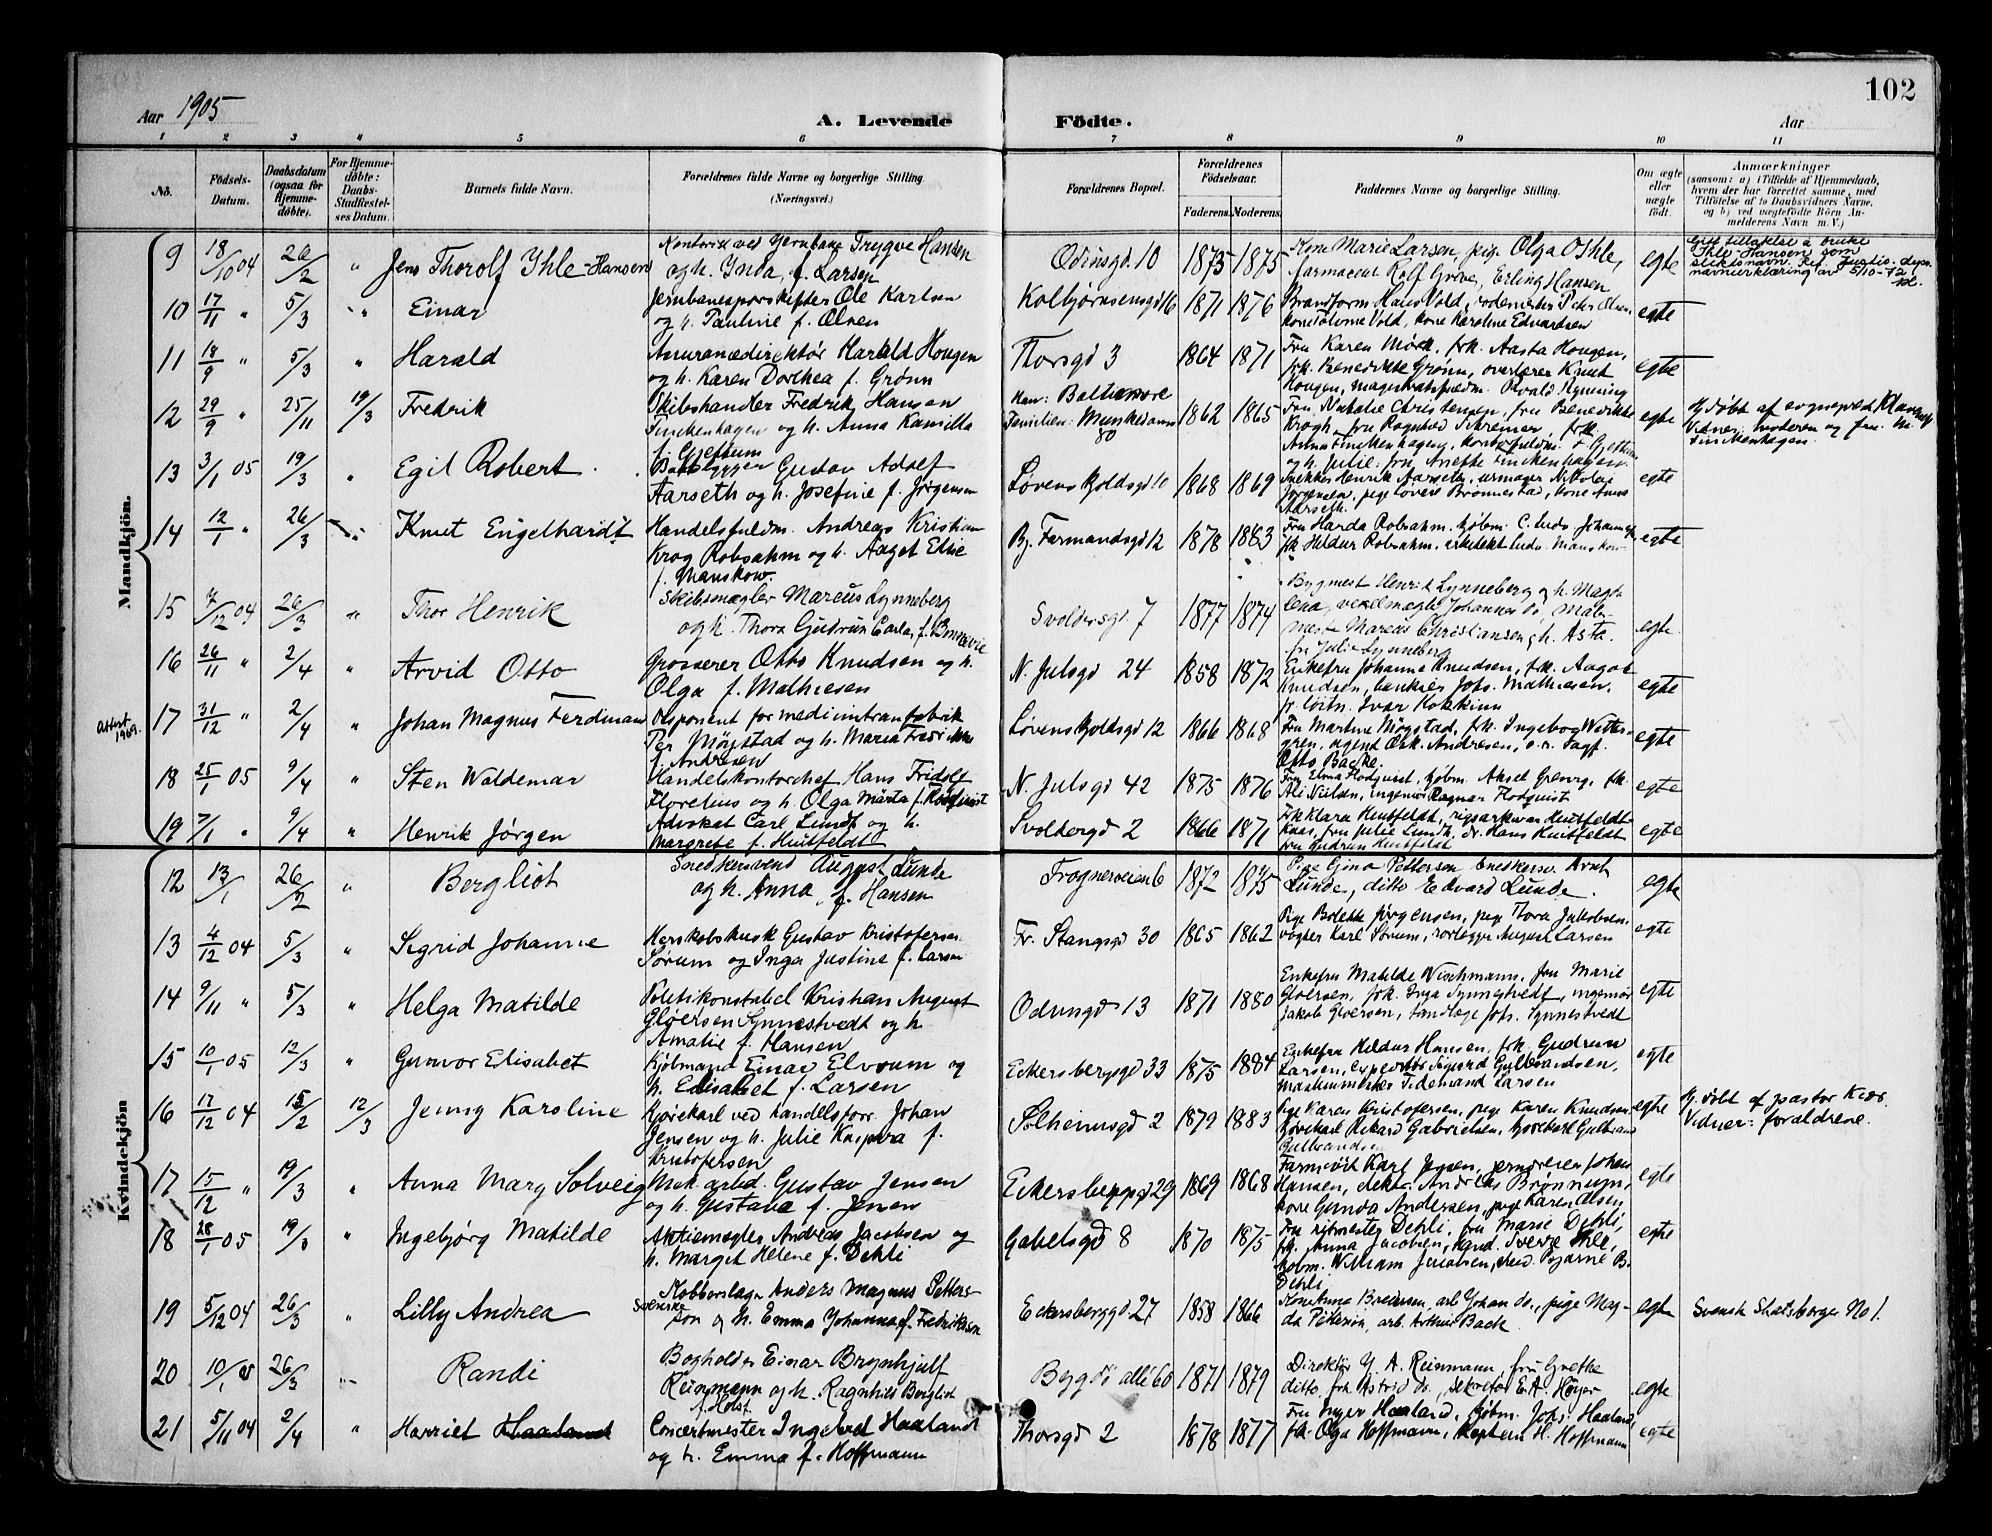 102
Aar 1905
A. Levende
Födte.
Aar
1 2 3 " 5 6 7 8 9 10 11
No.
Födsels-Datum.
Daabsdatum (ogsaa for Hjemmedöbte).
For Hjemmedöbte: Daabs-Stadfæstelses Datum.
Barnets fulde Navn.
Forældrenes fulde Navne og borgerlige Stilling
(Næringsvei.)
Forældrenes Bopæl.
Forældrenes Födselsaar.
Faderens. Moderens.
Faddernes Navne og borgerlige Stilling.
Om ægte eller uægte födt.
Anmærkninger
(saasom: a) i Tilfælde af Hjemmedaab, hvem der har forrettet samme, med Tilföielse af to Daabsvidners Navne, og b) ved uægtefödte Börn Anmelderens Navn m. V.)
Mandkjön.
9 18/10 04 26/2 " Jens Thorolf Ihle-Hansen
Kontorist ved Jernbane Trygve Hansen
og h. Ynda, f. Larsen
Odinsgd. 10 1873 1875
Kone Marie Larsen, pige Olga Ihle,
farmaceut Rolf Grove, Erling Hansen
egte
Gitt tillatelse å bruke
Ihle-Hansen som
slektsnavn. Kfr. Justis-dep.
navneerklæring av 5/10-72
10 17/11 " 5/3 " Einar
Jernbanesporskifter Ole Karlsen
og h. Pauline f. Olsen
Kolbjørnsensgd 16 1871 1876
Brandform. Hans Vold, rodemester Peter Olsen,
kone Vold, kone Karoline Edvardsen
egte
11 18/9 " 5/3 " Harald
Assurancedirektør Harald Hougen
og h. Karen Dorthea f. Grønn
Thorsgd 3 1864 1871
Fru Karen Mørk, frk. Aasta Hougen,
frk. Benedikte Grønn, overlærer Knut
Hougen, magistratsfuldm.
egte
12 29/9 " 25/11 19/3 Fredrik
Skibshandler Fredrik Hansen
Finckenhagen og h. Anna Kamilla
f. Gjethum
Han: Baltimore
Familien: Munkedams
80
1862 1865
Fru Natalie Christensen, fru Benedikte
Krogh, fru Ragnhild Schreiner, frk.
Anna Finckenhagen, kontorfuldm. F. Gjethum
og h. Julie, fru Anette Finckenhagen.
egte
Hj. døbt af sogneprest Klaveness
Vidner: moderen og fru M.
Finckenhagen.
13 3/1 05 19/3 " Egil Robert
Gustav Adolf
Aarseth og h. Josefine f. Jørgensen
Løvenskjoldsgd 10 1868 1869
Snekker Henrik Aarseth, urmager Nikolai
Jørgensen, pige Lovise Brønnestad, kone Anna
Aarseth.
egte
14 12/1 " 26/3 " Knut Engelhardt
Handelsfuldm. Andreas Kristian
Krog Robsahm og h. Aagot Elise
f. Manskow.
Bj. Farmandsgd 12 1878 1883
Fru Harda Robsahm, kjøbm. C. Ludv. Johannsen,
frk Hildur Robsahm, arkitekt Ludv. Manskow
egte
15 7/12 04 26/3 " Thor Henrik
Skibsmægler Marcus Lynneberg
og h. Thora Gudrun Carla f.
Svoldersgd. 7 1877 1874
Bygmest. Henrik Lynneberg og h. Magda-
lena, vexelmægl. Johannes do,
Marcus Christiansen, h. Asta.
fru Julie Lynneberg
egte
16 26/11 " 2/4 " Arvid Otto
Grosserer Otto Knudsen og h.
Olga f. Mathiesen
N. Julsgd 24 1858 1872
Enkefru Johanne Knudsen, frk. Aagot
Knudsen, bankier Johs. Mathiesen,
pr. løitn. Ivar Kokkinn
egte
Attest
1969.
17 31/12 " 2/4 " Johan Magnus Ferdinand
Disponent for medicintranfabrik
Per Møgstad og h. Maria Fredrikke
f. Andresen
Løvenskjoldsgd 12 1866 1868
Fru Martine Møgstad, frk. Ingeborg Witter-
gren, agent Osk. Andresen, o.r. sagf.
Otto Backe.
egte
18 25/1 05 9/4 " Sten Waldemar
Handelskontorchef Hans Fridolf
Florelius og h. Olga Märta f. Flodquist
N. Julsgd 42 1875 1876
Fru Elma Flodquist, kjøbm. Aksel Georg, frk.
Ali Nielsen, ingeniør Ragnar Flodquist
egte
19 7/1 " 9/4 " Henrik Jørgen
Advokat Carl Lundh og h.
Margrete f. Huitfeldt
Svoldergd 2 1866 1871
Frk Klara Huitfeldt, rigsarkivar Huitfeldt-
Kaas, fru Julie Lundh, dr. Hans Huitfeldt
fru Gudrun Huitfeldt
egte
Kvindekjön
12 13/1 26/2 " Bergliot
Snedkersvend August Lunde
og h. Anna, f. Hansen
Frognerveien 6 1872 1875
Pige Gina Pettersen snedkersv. Arnt
Lunde, ditto Edvard Lunde.
egte
13 4/12 04 5/3 " Sigrid Johanne
Herskabskusk Gustav Kristofersen
Sørum og Inga Justine f. Larsen
Fr. Stangsgd 30 1865 1862
Pige Bolette Jørgensen, pige Thora Jakobsen,
vogter Karl Sørum, rørlægger August Larsen
egte
14 9/11 " 5/3 " Helga Matilde
Politikonstabel Kristian August
Gløersen Synnestvedt og h.
Amalie f. Hansen
Odinsgd 13 1871 1880
Enkefru Matilde Wischmann, fru Marie
Gløersen, frk. Inga Synnestvedt, ingeniør
Jakob Gløersen, tandlæge Johs. Synnestvedt
egte
15 10/1 05 12/3 " Gunvor Elisabet
Kjøbmand Einar Elvrum og
h. Elisabet f. Larsen
Eckersbergsgd 33 1875 1884
Enkefru Hildur Hansen, frk. Gudrun
Larsen, expeditør Sigurd Gulbrandsen,
maskinmester Tidemand Larsen
egte
16 17/12 04 15/2 12/3 Jenny Karoline
Kjørekarl ved handelsforr. Johan
Jensen og h. Julie Kaspara f.
Kristofersen
Solheimsgd 2 1879 1883
Pige Karen Kristofersen, pige Karen Knudsen,
kjørekarl Rikard Gabrielsen, kjørekarl Gulbrand
Gulbrandsen
egte
Hj. døbt af pastor Kiær.
Vidner: forældrene.
17 15/12 " 19/3 " Anna Mary Solveig
Mek. arbd. Gustav Jensen
og h. Gustava f. Jensen
Eckersbergsgd 29 1869 1868
Karl Jensen, jerndreier Johan
Hansen, Andreas Brønnum,
kone Gunda Andersen, pige Karen Olsen
egte
18 28/1 05 19/3 " Ingebjørg Matilde
Aktiemægler Andreas Jacobsen og
h. Margit Helene f. Dehli
Gabelsgd 8 1870 1875
Fru ritmester Dehli, fru Marie Dehli,
frk. Anna Jacobsen, kand. Sverre Ihle,
kjøbm. William Jacobsen, stud. Bjarne B.
Dehli
egte
19 5/12 04 26/3 " Lilly Andrea
Kobberslager Anders Magnus Petters-
svenske
son og h. Emma Johanna f. Fredrikson
Eckersbergsgd 27 1858 1866
Kone Anna Bredesen, arb Johan do., pige Mag-
da Petterson, arb. Arthur Back.
egte
Svensk Statsborger No 1.
20 10/1 05 26/3 " Randi
Bogholder Einar Brynhjulf
Reinmann og h. Ragnhild Bergliot
f. Holst
Bygdø allé 60 1871 1879
Direktør Y. A. Reinmann, fru Grethe
ditto, frk Astrid do., sekretær E. A. Høyer
egte
21 5/11 04 2/4 " Harriet Haaland
Concertmester Ingevald Haaland
og h. Emma f. Hoffmann
Thorsgd 2 1878 1877
Fru Inger Haaland, kjøbm. Johs. Haaland,
frk. Olga Hoffmann, kaptein H. Hoffmann
egte